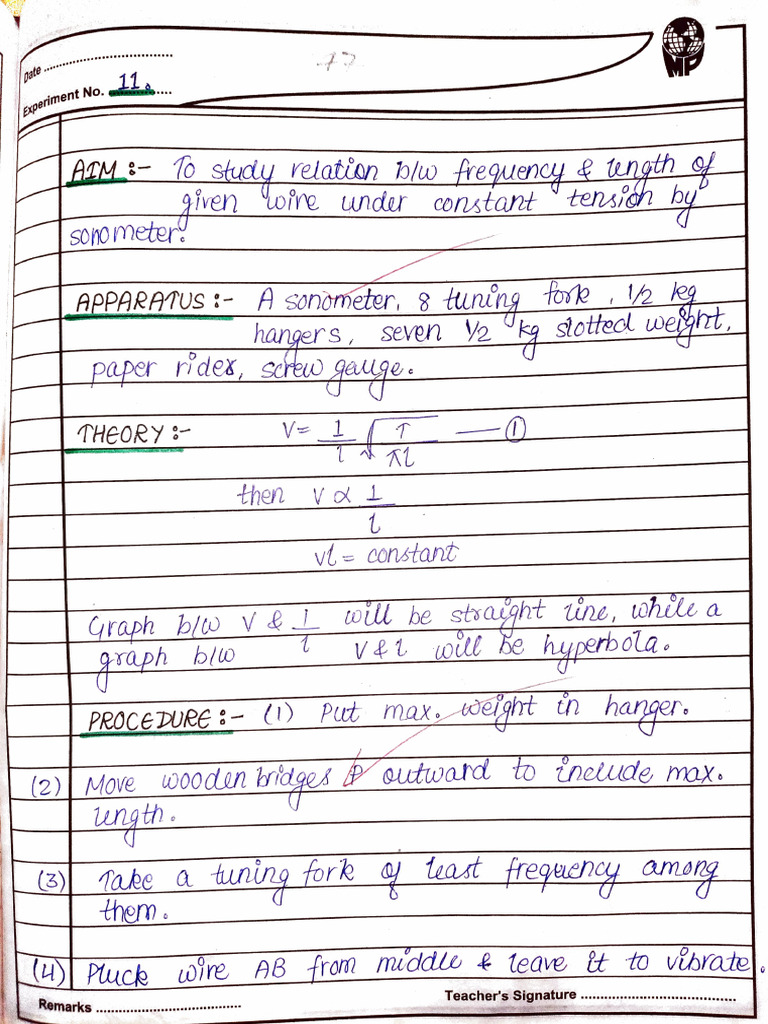 Date ..................................
MP
Experiment No. 11. .....
AIM :- To study relation b/w frequency & length of
given wire under constant tension by
sonometer.
APPARATUS :- A sonometer, 8 tuning fork, 1/2 kg
hangers, seven 1/2 kg slotted weight,
paper rider, screw gauge.
THEORY :- V = 1/l √T/πl — ①
then V ∝ 1/l
vl = constant
Graph b/w V & 1/l will be straight line, while a
graph b/w V & l will be hyperbola.
PROCEDURE :- (1) Put max. weight in hanger.
(2) Move wooden bridges P outward to include max.
length.
(3) Take a tuning fork of least frequency among
them.
(4) Pluck wire AB from middle & leave it to vibrate.
Remarks ..................................
Teacher's Signature ..................................